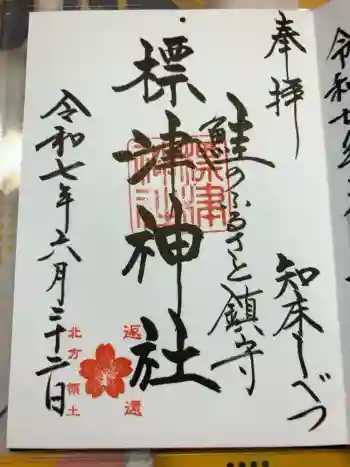 奉拝
知床しべつ
鮭のふるさと鎮守
標津神社
標津
神社
令和七年六月二十二日
返還
北方領土